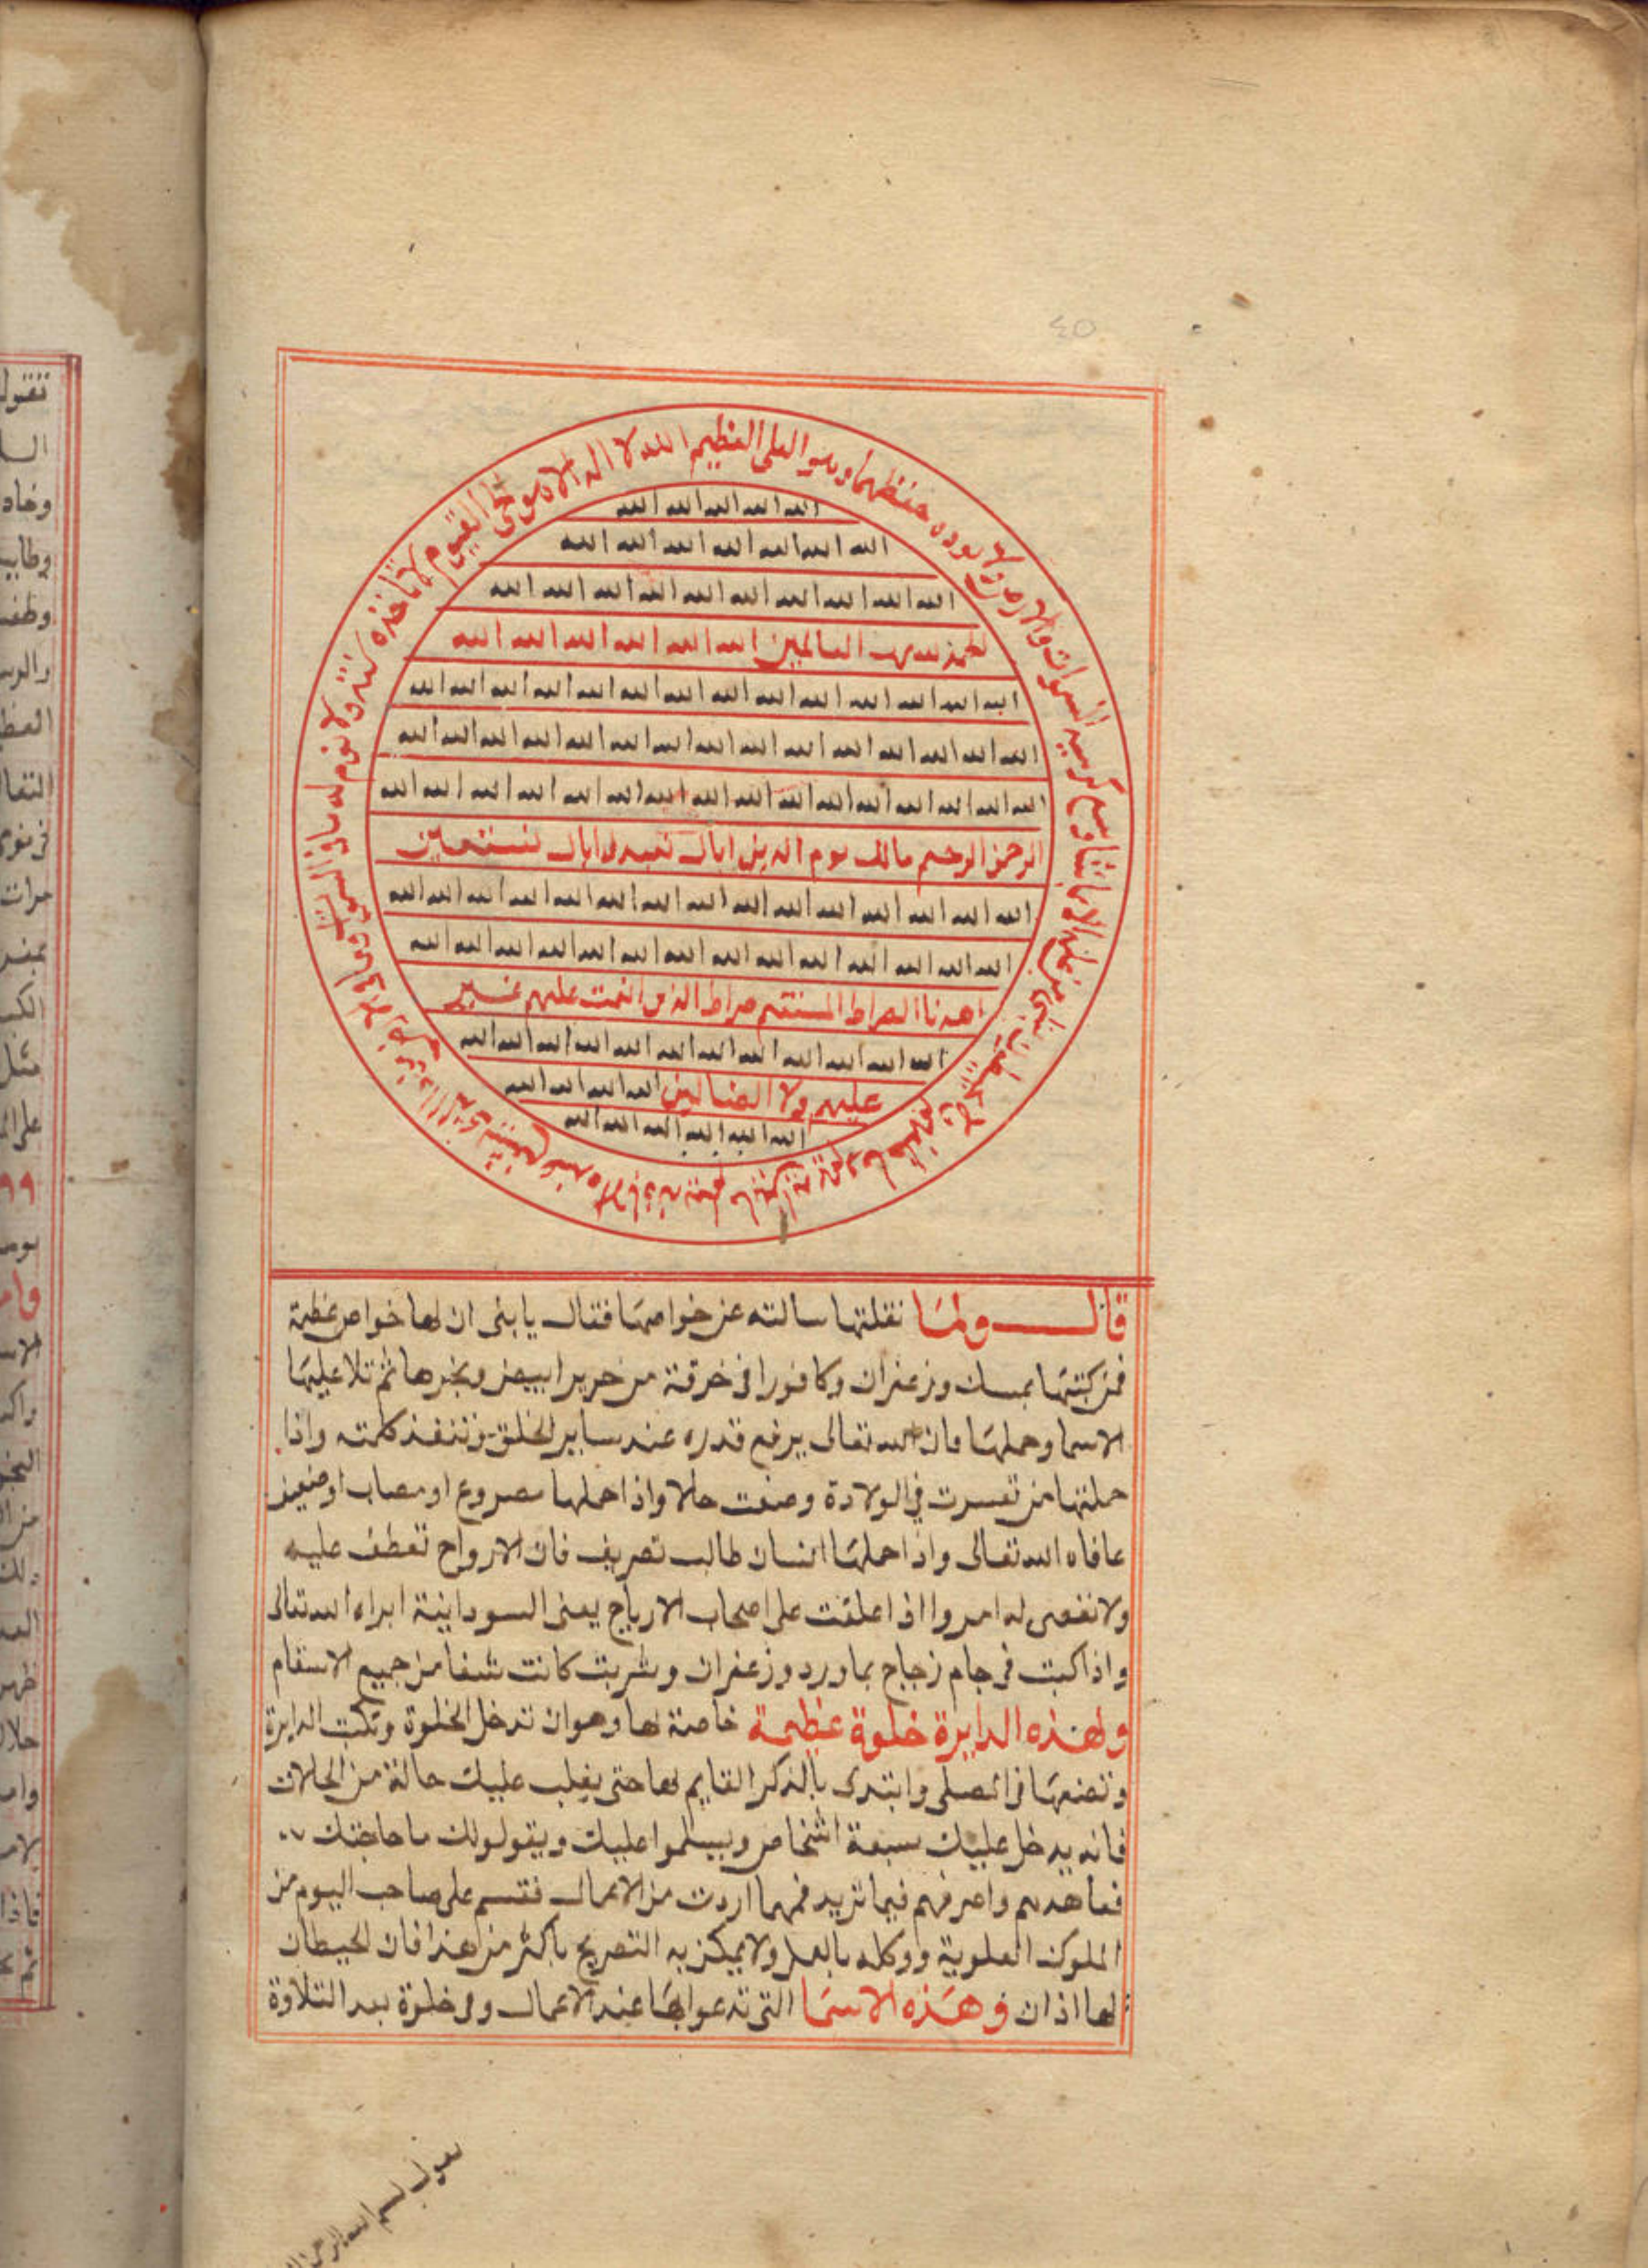 ٤٥
الله لا اله الا هو الحي القيوم لا تاخذه سنة ولا نوم له ما في السموات وما في الارض من ذا الذي يشفع عنده الا باذنه يعلم ما بين ايديهم وما خلفهم ولا يحيطون بشي من علمه الا بما شا وسع كرسيه السموات والارض ولا يوده حفظهما وهو العلي العظيم
الله الله الله الله الله
الله الله الله الله الله الله الله
الله الله الله الله الله الله الله الله الله الله
الحمد لله رب العالمين الله الله الله الله الله الله
الله الله الله الله الله الله الله الله الله الله الله الله الله الله
الله الله الله الله الله الله الله الله الله الله الله الله الله الله الله
الله الله الله الله الله الله الله الله الله الله الله الله الله الله الله
الرحمن الرحيم مالك يوم الدين اياك نعبد واياك نستعين
الله الله الله الله الله الله الله الله الله الله الله الله الله الله الله
الله الله الله الله الله الله الله الله الله الله الله الله الله الله
اهدنا الصراط المستقيم صراط الذين انعمت عليهم غير
الله الله الله الله الله الله الله الله الله الله الله
عليهم ولا الضالين الله الله الله الله
الله الله الله الله الله الله
قال ولما نقلتها سالته عن خواصها فقال يا بنى ان لها خواص عظيمة
فمن كتبها بمسك وزعفران وكافورا فى خرقة من حرير ابيض وبخرها ثم تلا عليها
الاسما وحملها فان الله تعالى يرفع قدره عند ساير الخلق وتنفذ كلمته واذا
حملتها من تعسرت في الولادة وضعت حالا واذا حملها مصروع او مصاب او ضعيف
عافاه الله تعالى واذا حملها انسان طالب تصريف فان الارواح تعطف عليه
ولا تعصى له امر واذا علقت على اصحاب الارياح يعنى السودانية ابراه الله تعالى
واذا كبت فى جام زجاج بماورد وزعفران وشربت كانت شفا من جميع الاسقام
ولهذه الدايرة خلوة عظيمة خاصة لها وهو ان تدخل الخلوة وتكتب الدايرة
وتضعها فى المصلى وابتدى بالذكر القايم لها حتى يغلب عليك حالة من الحالات
فانه يدخل عليك سبعة اشخاص ويسلموا عليك ويقولولك ما حاجتك
فعاهدهم واصرفهم فيما تريد فمهما اردت من الاعمال فقسم على صاحب اليوم من
الملوك العلوية ووكله بالعمل ولا يمكن به التصريح باكثر من هذا فان لحيطان
لها اذان وهذه الاسما التى تدعوا بها عند الاعمال وفى خلوة بعد التلاوة
تقول بسم الله الرحمن